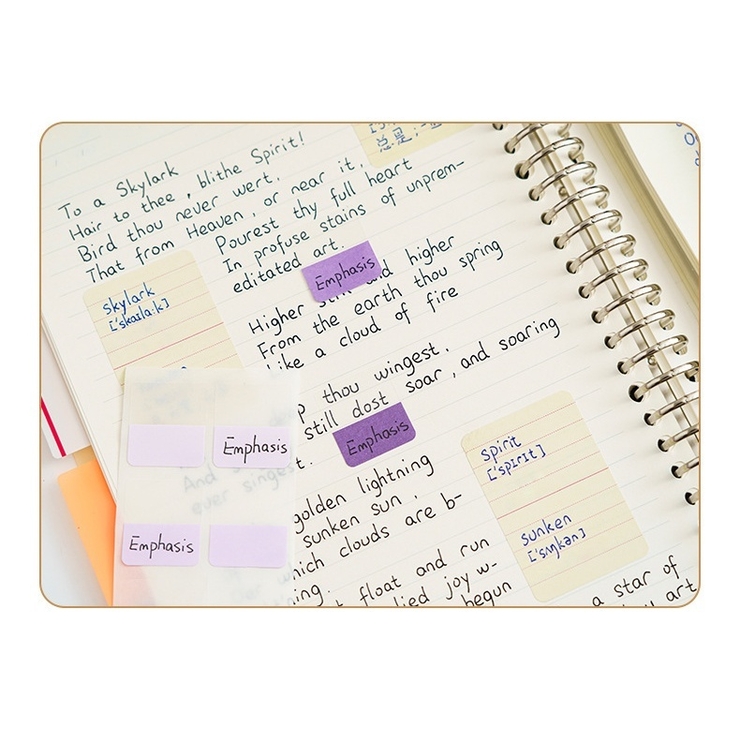 To a Skylark
Hair to thee, blithe Spirit!
Bird thou never wert.
That from Heaven, or near it,
Pourest thy full heart
In profuse stains of unprem-
editated art.
Emphasis
Higher still and higher
From the earth thou spring
Like a cloud of fire
thou wingest,
still dost soar, and soaring
Emphasis
And
ever singest
golden lightning
sunken sun,
which clouds are b-
float and run
joy w-
begun
a star of
art
skylark
['skaɪlɑːk]
Emphasis
Emphasis
spirit
['spɪrɪt]
sunken
['sʌŋkən]